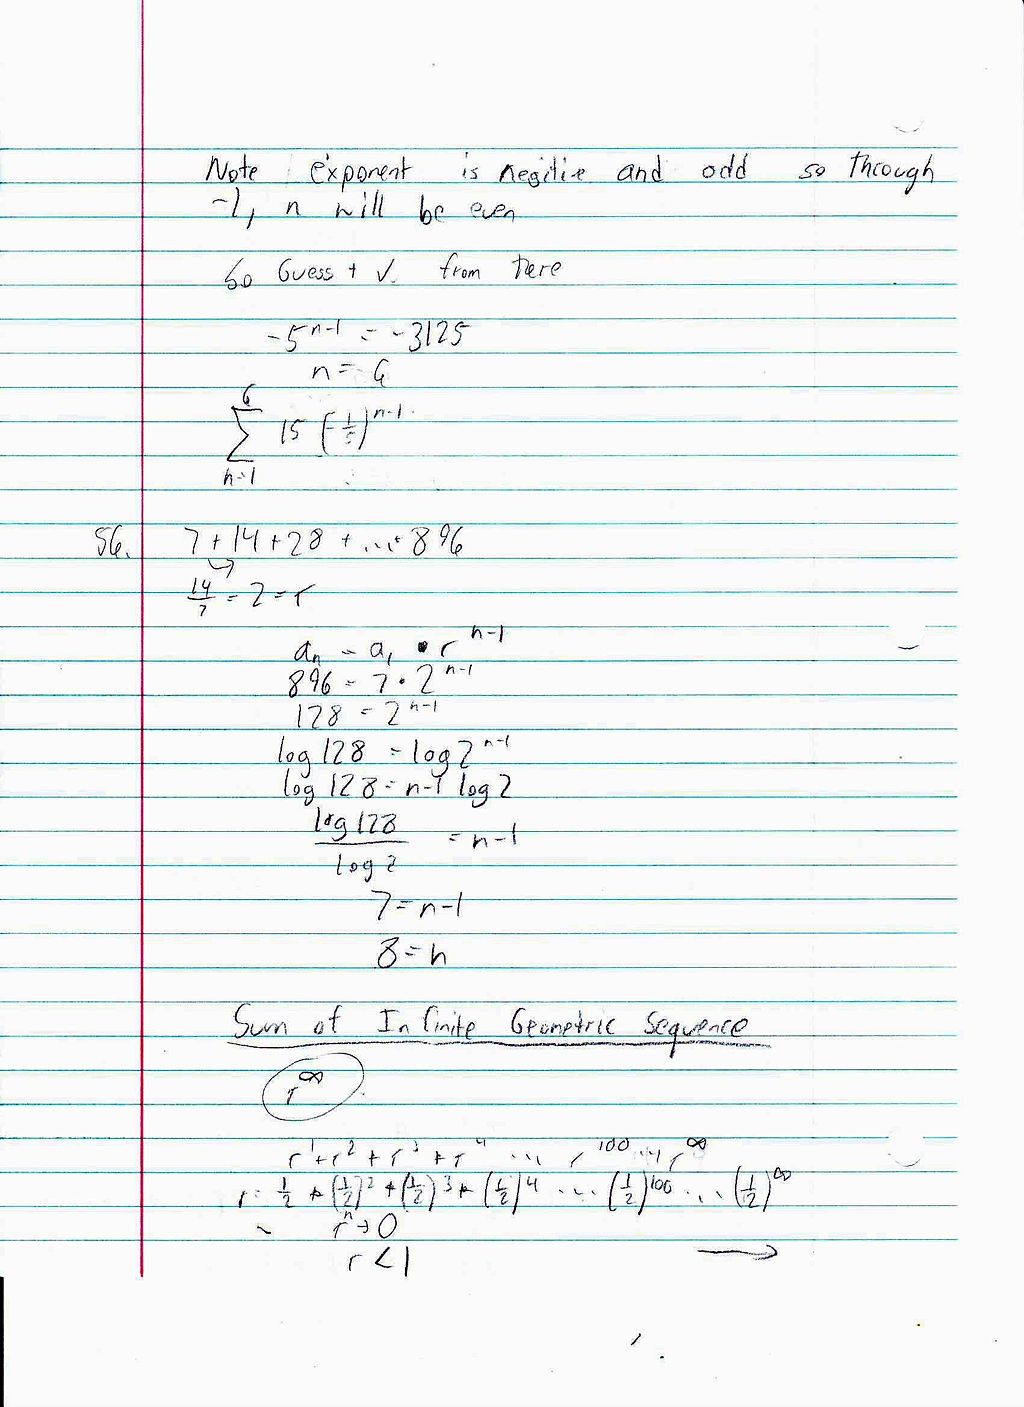 Note exponent is negitive and odd so through
-1, n will be even
So Guess + √. from here
-5^{n-1} = -3125
n = 6
6
∑ 15 (-1/5)^{n-1}
n=1
56. 7 + 14 + 28 + ... + 896
14/7 = 2 = r
a_n = a_1 • r^{n-1}
896 = 7 • 2^{n-1}
128 = 2^{n-1}
log 128 = log 2^{n-1}
log 128 = n-1 log 2
log 128 / log 2 = n-1
7 = n-1
8 = n
Sum of Infinite Geometric Sequence
r^∞
r^1 + r^2 + r^3 + r^4 ... r^100 ... r^∞
r = 1/2 + (1/2)^2 + (1/2)^3 + (1/2)^4 ... (1/2)^100 ... (1/2)^∞
r^n → 0
r < 1 →